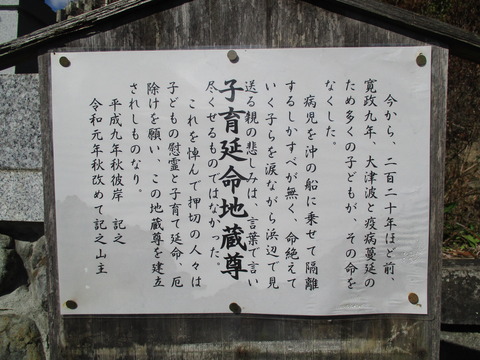 今から、二百二十年ほど前、
寛政九年、大津波と疫病蔓延の
ため多くの子どもが、その命を
なくした。
病児を沖の船に乗せて隔離
するしかすべが無く、命絶えて
いく子らを涙ながら浜辺で見
送る親の悲しみは、言葉で言い
尽くせるものではなかった。
子育延命地蔵尊
これを悼んで押切の人々は
子どもの慰霊と子育て延命、厄
除けを願い、この地蔵尊を建立
されしものなり。
平成九年秋彼岸 記之
令和元年秋改めて記之山主